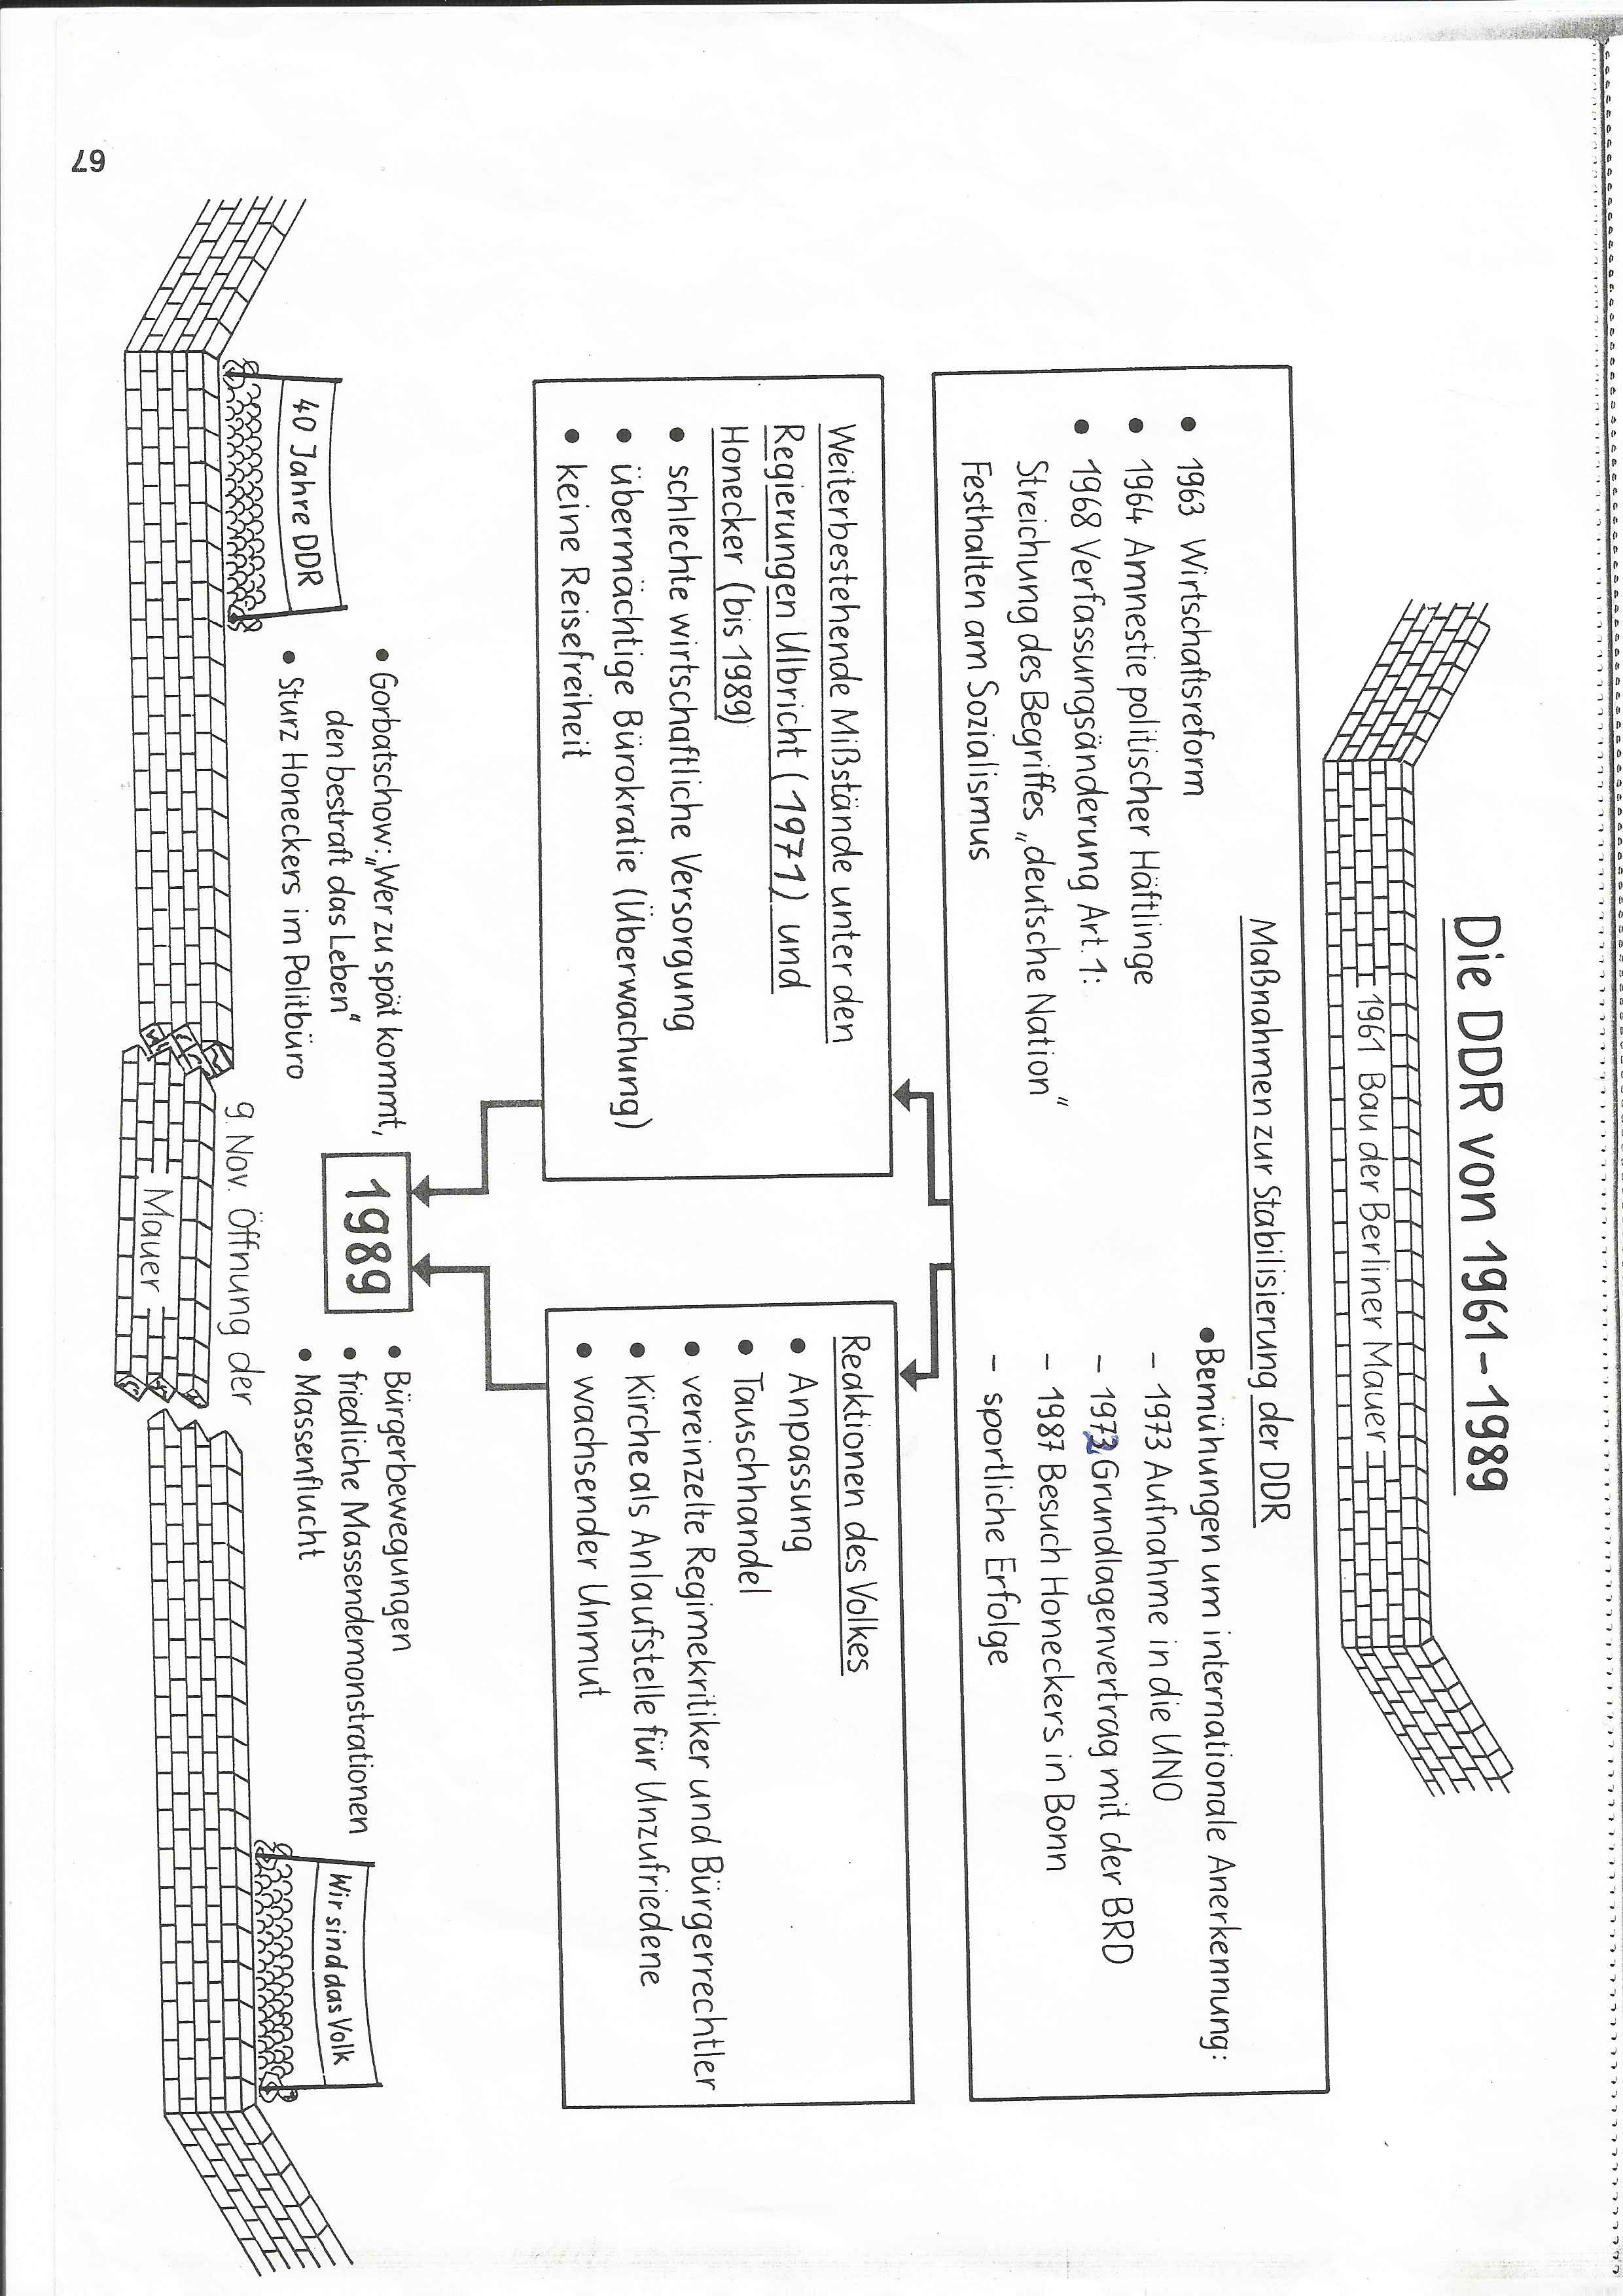 Die DDR von 1961-1989
1961 Bau der Berliner Mauer
Maßnahmen zur Stabilisierung der DDR
• 1963 Wirtschaftsreform
• 1964 Amnestie politischer Häftlinge
• 1968 Verfassungsänderung Art. 1:
Streichung des Begriffes „deutsche Nation“
Festhalten am Sozialismus
• Bemühungen um internationale Anerkennung:
- 1973 Aufnahme in die UNO
- 1972 Grundlagenvertrag mit der BRD
- 1987 Besuch Honeckers in Bonn
- sportliche Erfolge
Weiterbestehende Mißstände unter den
Regierungen Ulbricht (1971) und
Honecker (bis 1989)
• schlechte wirtschaftliche Versorgung
• übermächtige Bürokratie (Überwachung)
• keine Reisefreiheit
Reaktionen des Volkes
• Anpassung
• Tauschhandel
• vereinzelte Regimekritiker und Bürgerrechtler
• Kirche als Anlaufstelle für Unzufriedene
• wachsender Unmut
• Gorbatschow: „Wer zu spät kommt,
den bestraft das Leben“
• Sturz Honeckers im Politbüro
1989
• Bürgerbewegungen
• friedliche Massendemonstrationen
• Massenflucht
40 Jahre DDR
Wir sind das Volk
9. Nov. Öffnung der
Mauer
67